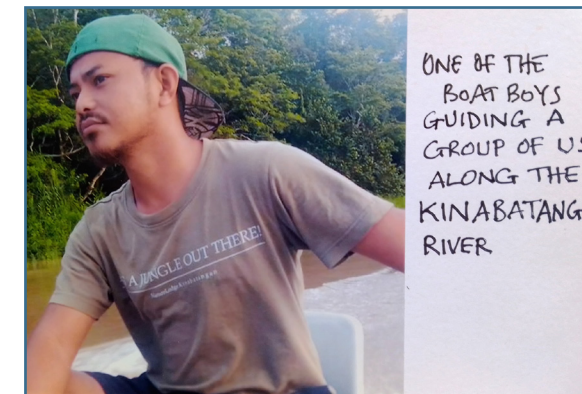 A JUNGLE OUT THERE!
ONE OF THE
BOAT BOYS
GUIDING A
GROUP OF US
ALONG THE
KINABATANG
RIVER